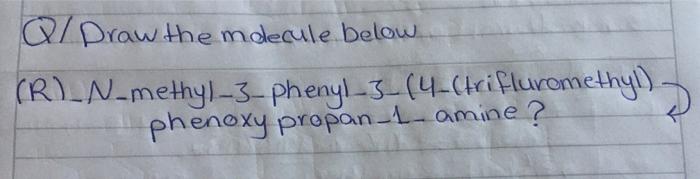 Q/ Draw the molecule below
(R)_N_methyl_3_phenyl_3_(4_(trifluromethyl)
phenoxy propan_1_amine?